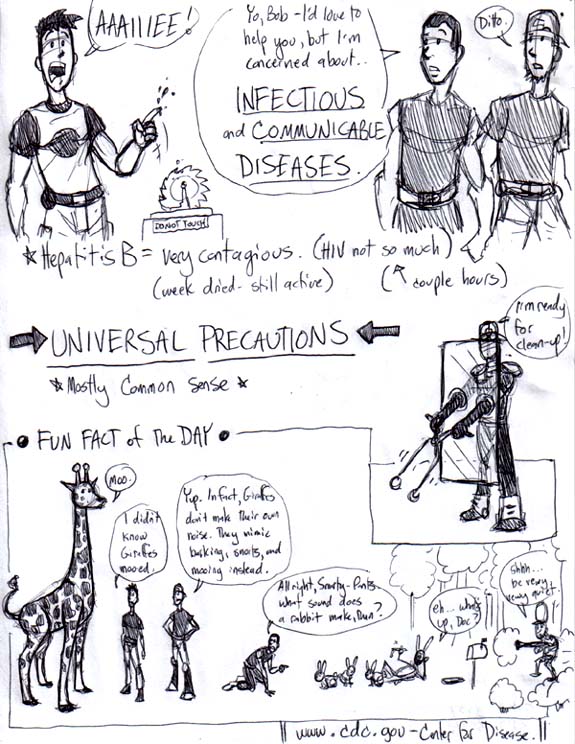 AAAIIIEE!
Yo, Bob - I'd love to
help you, but I'm
concerned about..
INFECTIOUS
and COMMUNICABLE
DISEASES.
Ditto.
DO NOT TOUCH
* Hepatitis B = very contagious. (HIV not so much)
(week dried - still active) (↖ couple hours)
UNIVERSAL PRECAUTIONS
* Mostly Common sense *
I'm ready
for
clean-up!
• FUN FACT of the DAY •
Moo.
I didn't
know
Giraffes
mooed.
Yup. In fact, Giraffes
don't make their own
noise. They mimic
barking, snorts, and
mooing instead.
All right, Smarty-Pants.
what sound does
a rabbit make, then?
eh... what's
up, Doc?
shhh...
be very,
very quiet.
|| www.cdc.gov - Center for Disease. ||